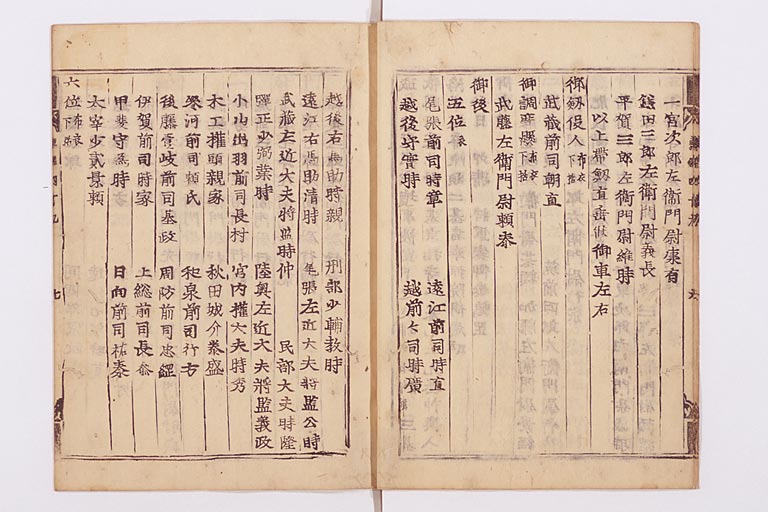 一宮次郎左衛門尉康有
鎌田三郎左衛門尉義長
平賀三郎左衛門尉維時
以上帯劔直垂候御車左右
御劔役人布衣下括
武蔵前司朝直
御調度懸布衣下括
武藤左衛門尉頼泰
御後
五位布衣
尾張前司時章 遠江前司時直
越後守實時 越前々司時廣
越後右馬助時親 刑部少輔教時
遠江右馬助清時 尾張左近大夫将監公時
武蔵左近大夫将監時仲 民部大夫時隆
弾正少弼業時 陸奥左近大夫将監義政
小山出羽前司長村 宮内権大夫時秀
木工権頭親家 秋田城介泰盛
参河前司頼氏 和泉前司行方
後藤壹岐前司基政 周防前司忠經
伊賀前司時家 上総前司長泰
甲斐守為時 日向前司祐泰
太宰少貳景頼
六位布衣
七